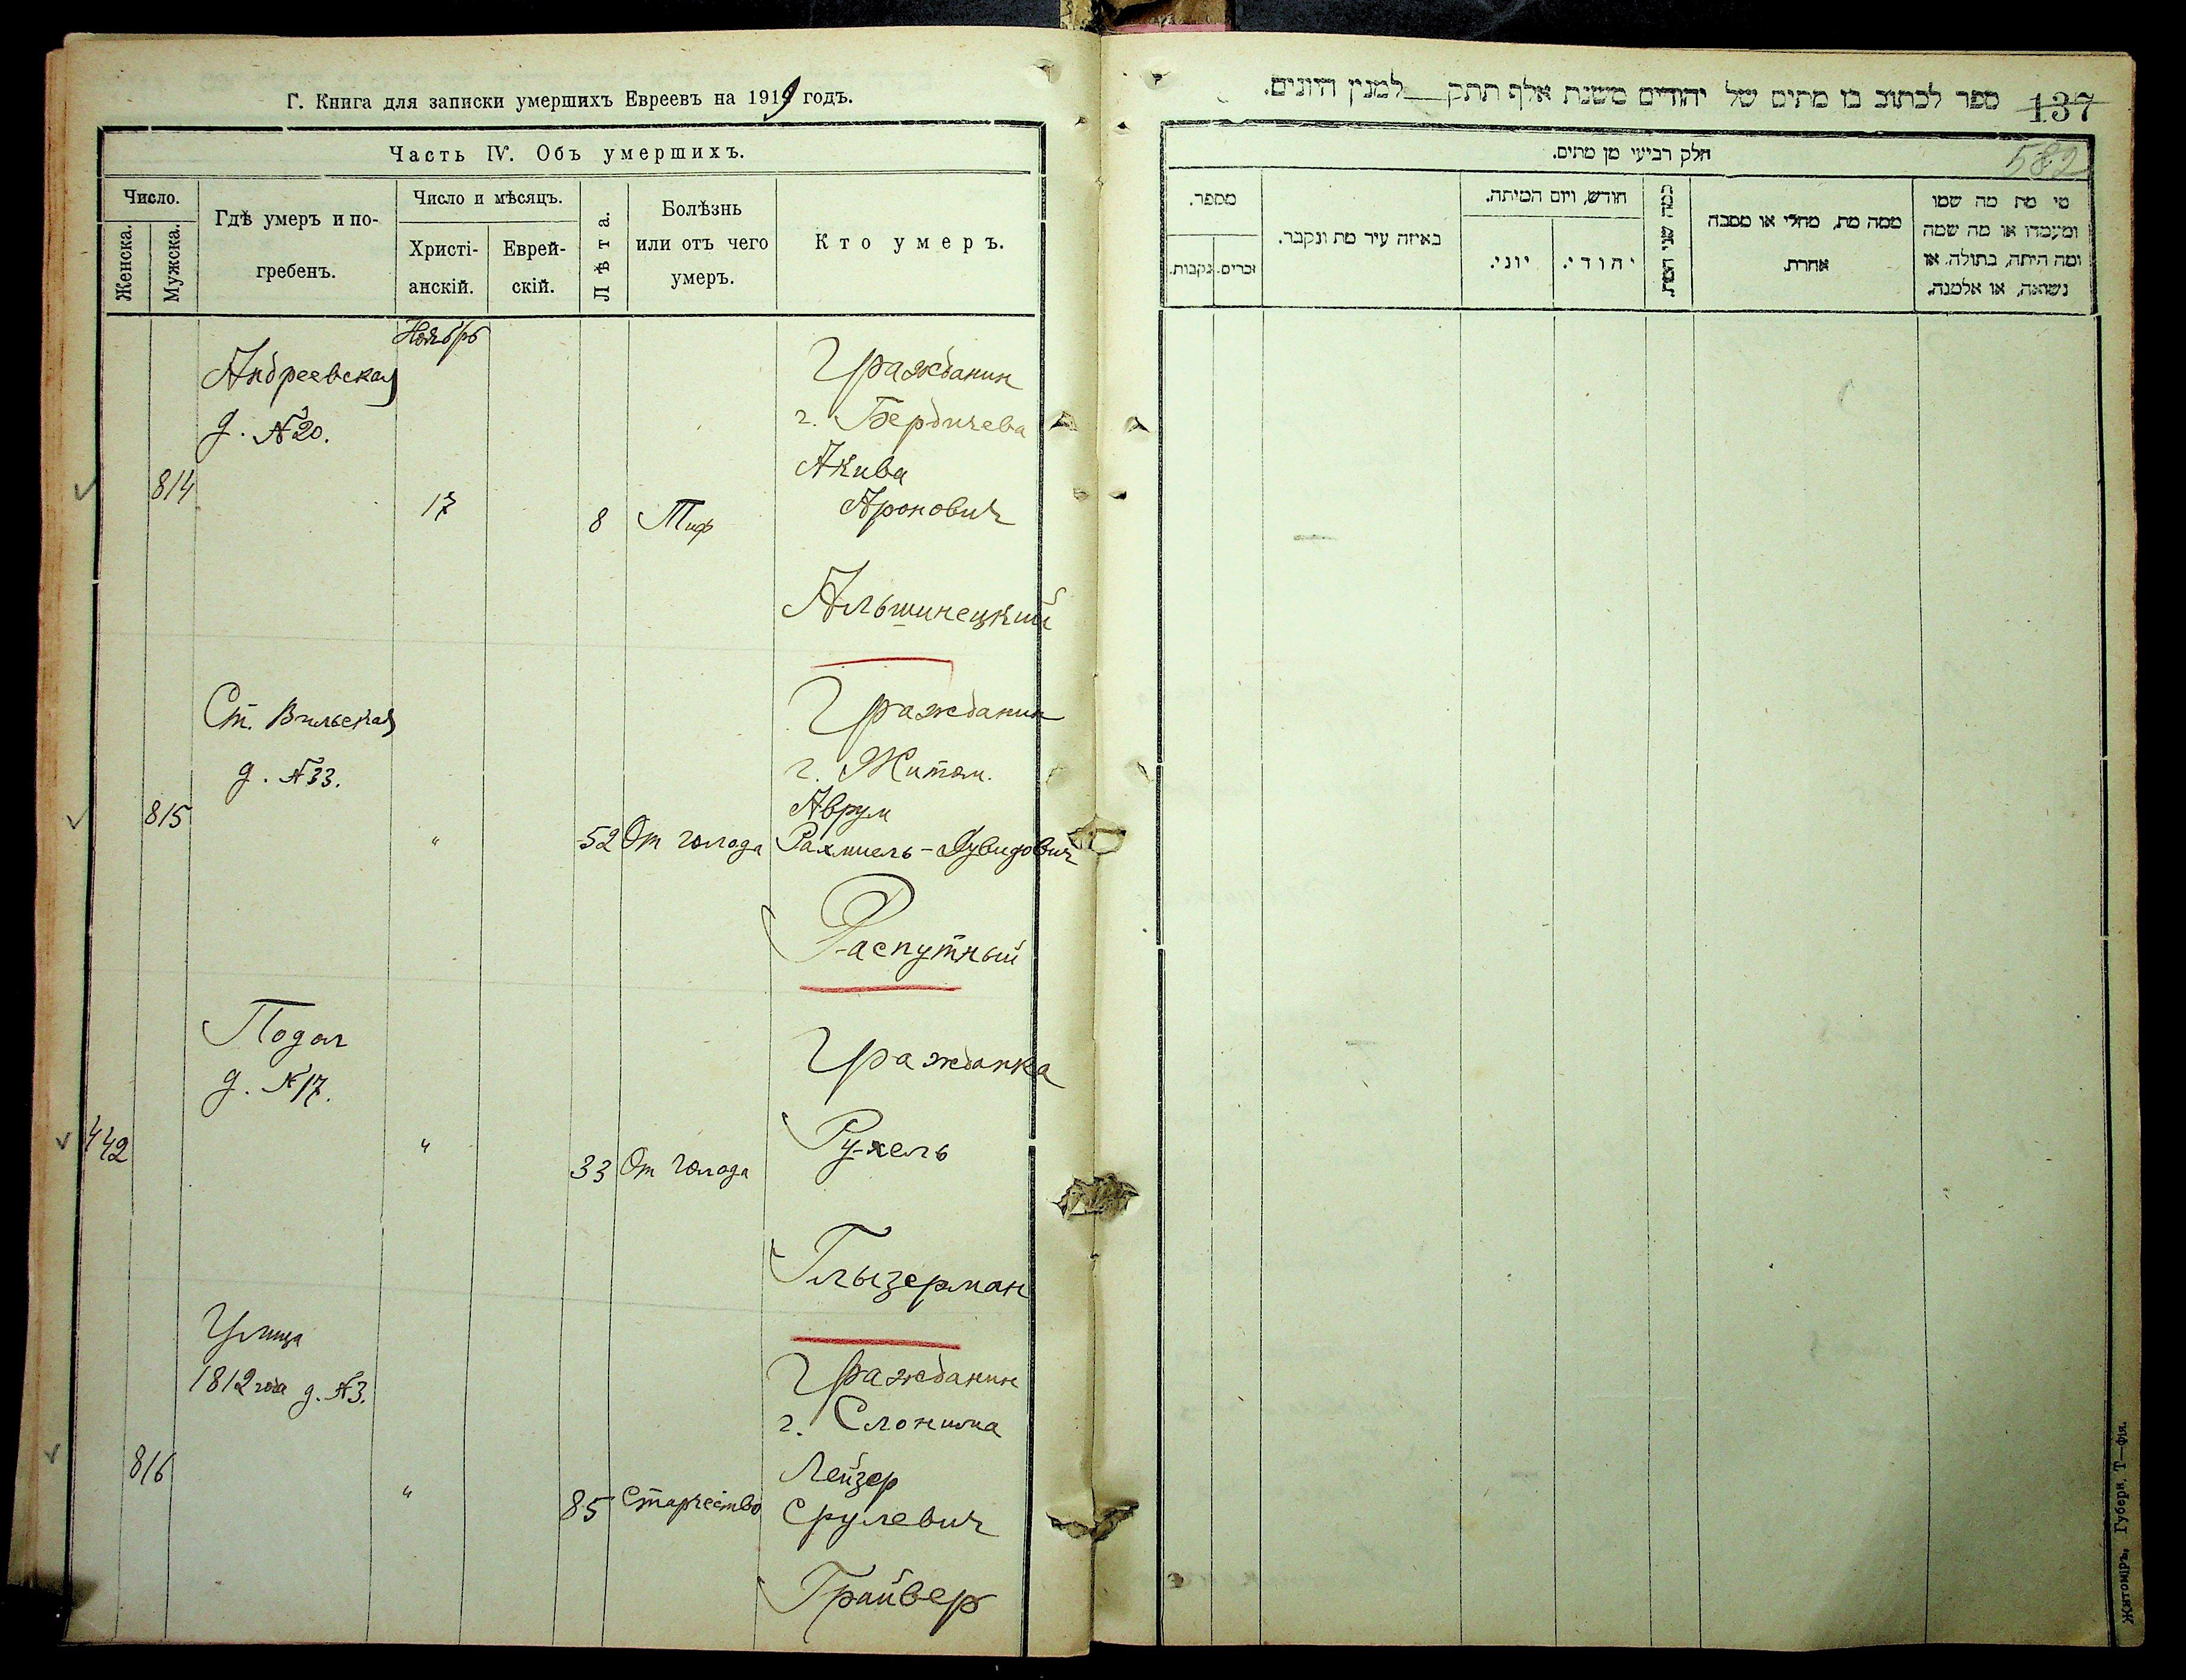 Г. Книга для записки умершихъ Евреевъ на 1919 годъ.
Часть IV. Объ умершихъ.
Число.
Женска.
Мужска.
Гдѣ умеръ и по-
гребенъ.
Число и мѣсяцъ.
Христі-
анскій.
Еврей-
скій.
Лѣта.
Болѣзнь
или отъ чего
умеръ.
Кто умеръ.
Ноябрь
Андреевская
д. №20.
814
17
8
Тиф
Гражданин
г. Бердичева
Акива
Аронович
Альшинецкий
Ст. Вильская
д. №33.
815
"
52
От голода
Гражданин
г. Житом.
Аврум
Рахмиель-Дувидович
Распутный
Подол
д. №17.
442
"
33
От голода
Гражданка
Рухель
Глызерман
Улица
1812 года д. №3.
816
"
85
Старчество
Гражданин
г. Слонима
Лейзер
Срулевич
Грайвер
ספר לכתוב בו מתים של יהודים משנת אלף תתק__ למנין היונים.
137
582
חלק רביעי מן מתים.
מספר.
זכרים.
נקבות.
באיזה עיר מת ונקבר.
חודש, ויום המיתה.
יוני.
יהודי.
כמה שני המת.
ממה מת, מחלי או מסבה
אחרת.
מי מת מה שמו
ומעמדו או מה שמה
ומה היתה, בתולה, או
נשואה, או אלמנה.
Житоміръ, Губерн. Т—фія.